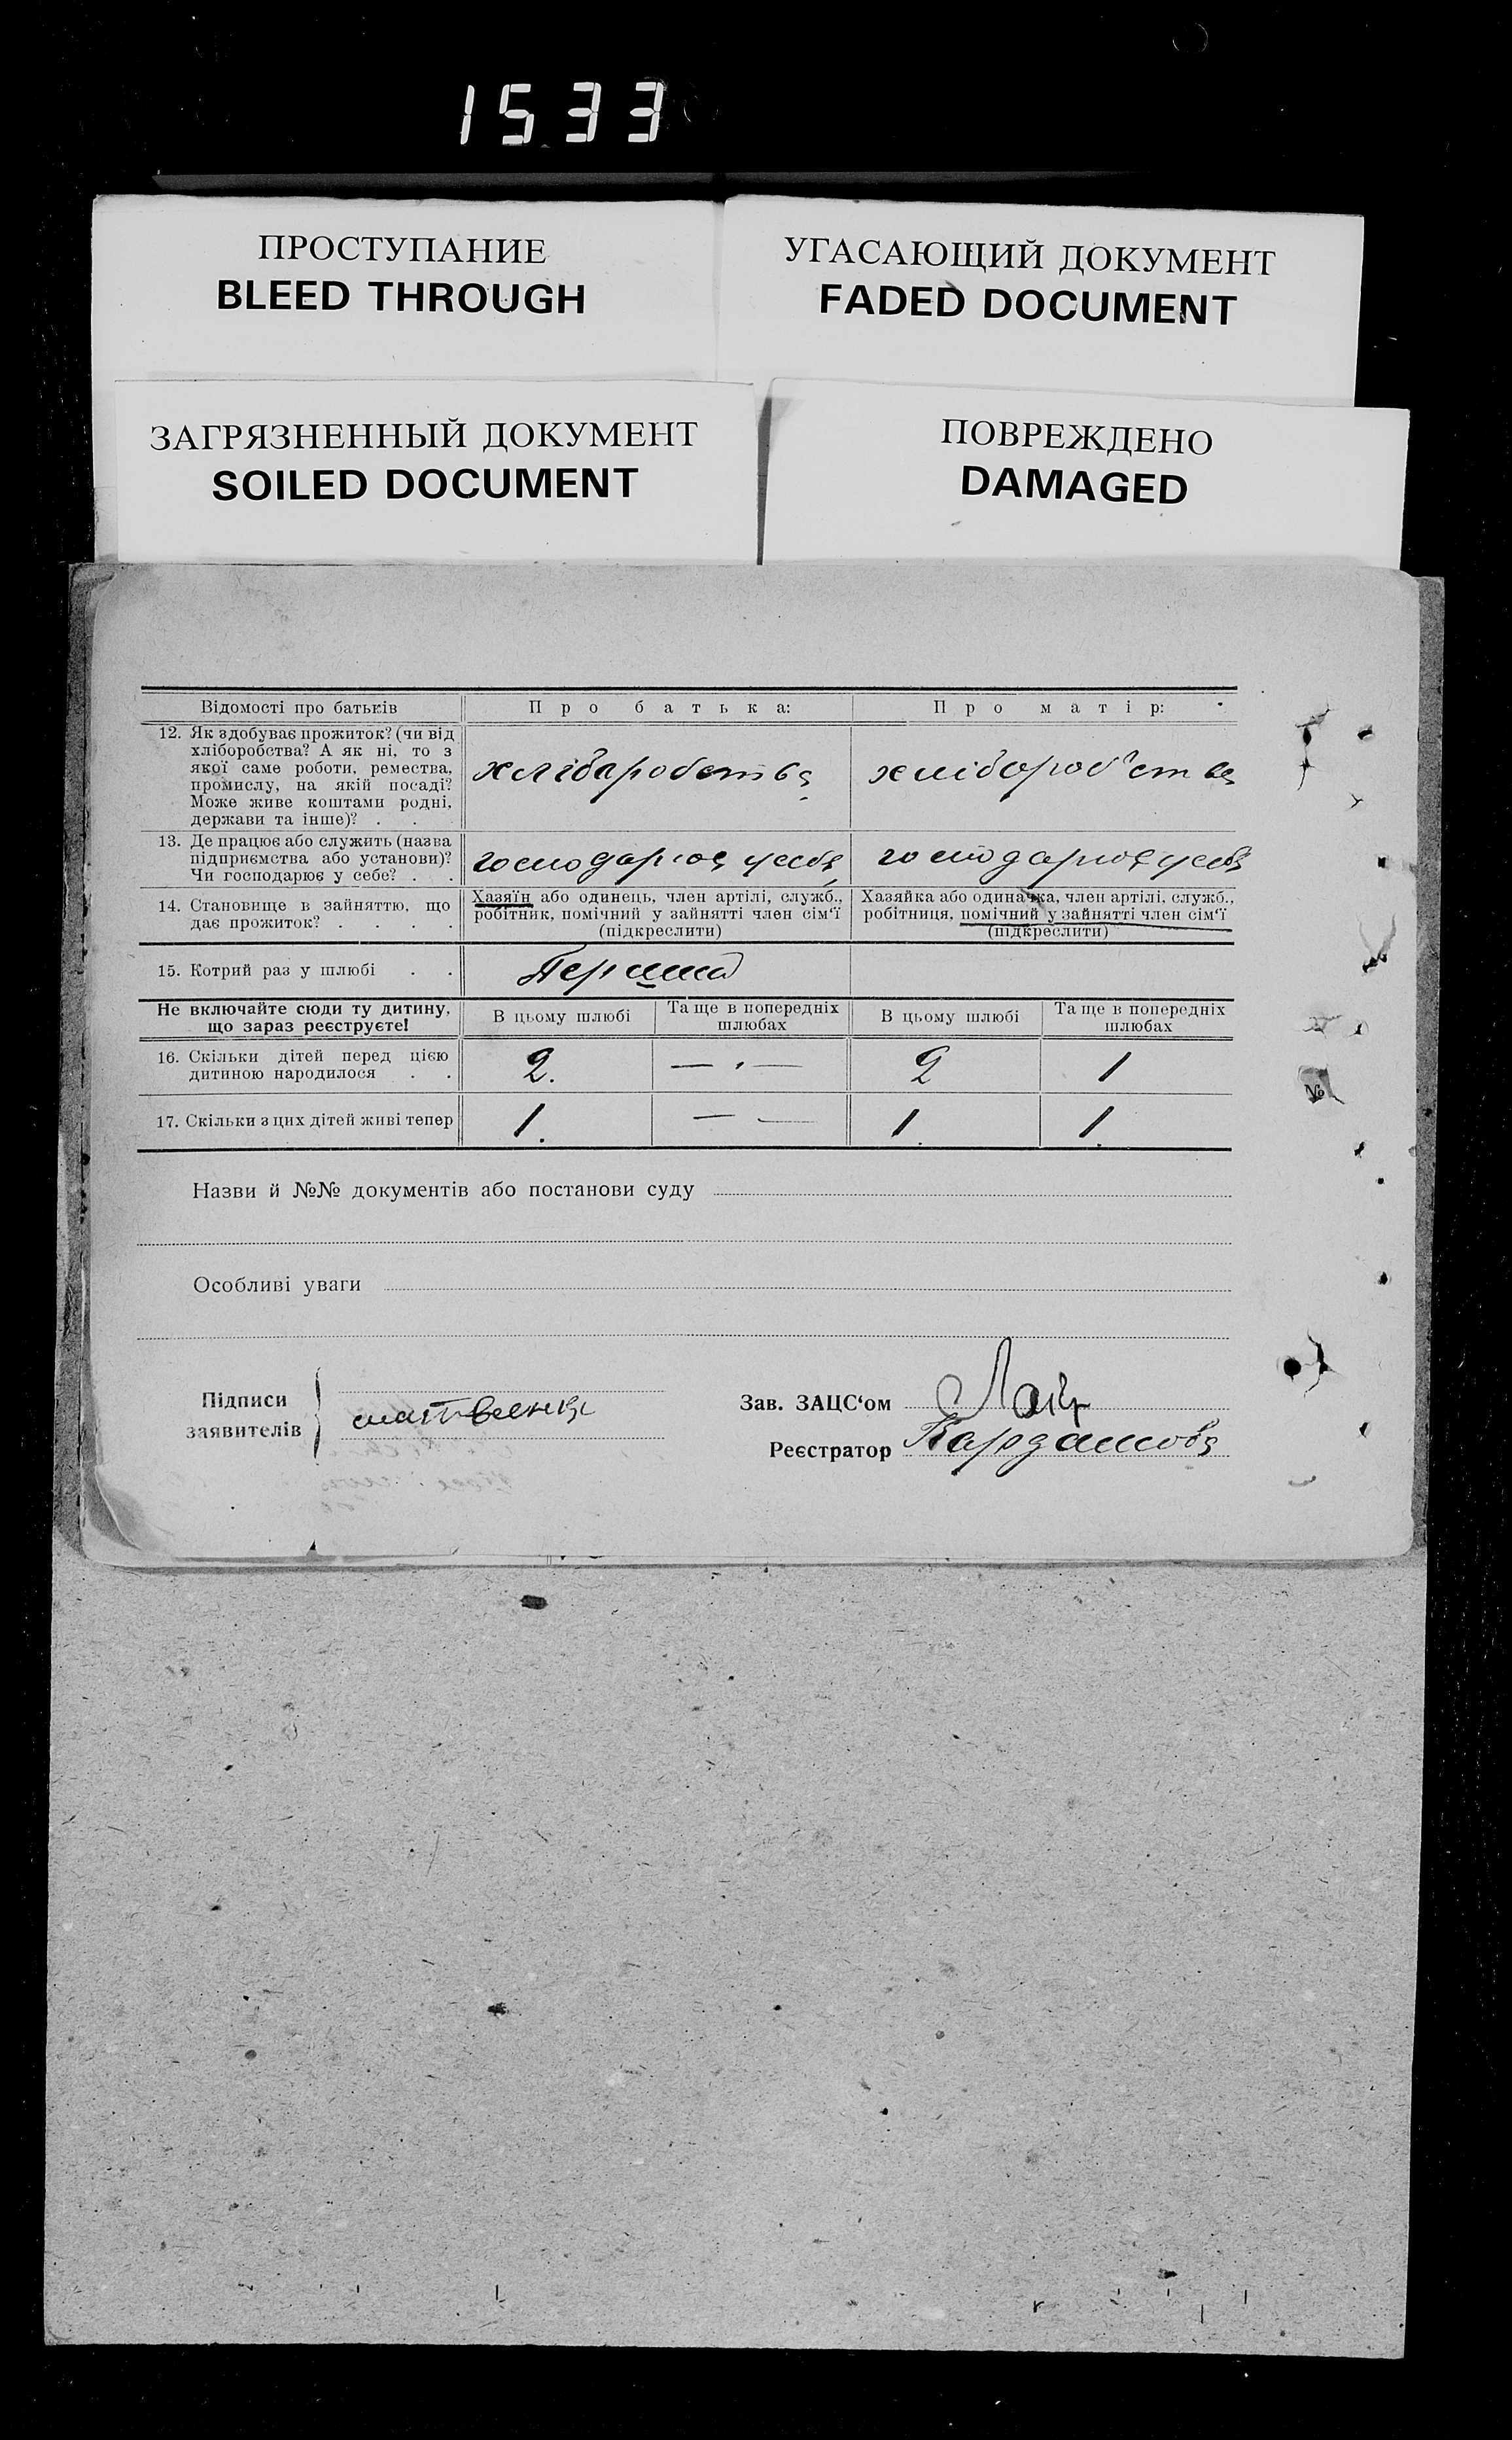 1533
ПРОСТУПАНИЕ
BLEED THROUGH
УГАСАЮЩИЙ ДОКУМЕНТ
FADED DOCUMENT
ЗАГРЯЗНЕННЫЙ ДОКУМЕНТ
SOILED DOCUMENT
ПОВРЕЖДЕНО
DAMAGED
Відомості про батьків
Про батька:
Про матір:
12. Як здобуває прожиток? (чи від
хліборобства? А як ні, то з
якої саме роботи, ремества,
промислу, на якій посаді?
Може живе коштами родні,
держави та інше)? . .
хлібаробства
хлібороб'ства
13. Де працює або служить (назва
підприємства або установи)?
Чи господарює у себе? . .
господарює усебя
господарює усебя
14. Становище в зайняттю, що
дає прожиток? . . . .
Хазяїн або одинець, член артілі, служб.,
робітник, помічний у зайнятті член сім'ї
(підкреслити)
Хазяйка або одиначка, член артілі, служб.,
робітниця, помічний у зайнятті член сім'ї
(підкреслити)
15. Котрий раз у шлюбі . .
Перший
Не включайте сюди ту дитину,
що зараз реєструєте!
В цьому шлюбі
Та ще в попередніх
шлюбах
В цьому шлюбі
Та ще в попередніх
шлюбах
16. Скільки дітей перед цією
дитиною народилося . .
2.
— . —
2
1
17. Скільки з цих дітей живі тепер
1.
— —
1.
1.
№
Назви й №№ документів або постанови суду
Особливі уваги
Підписи
заявителів
Зав. ЗАЦС'ом
Реєстратор Кардашова